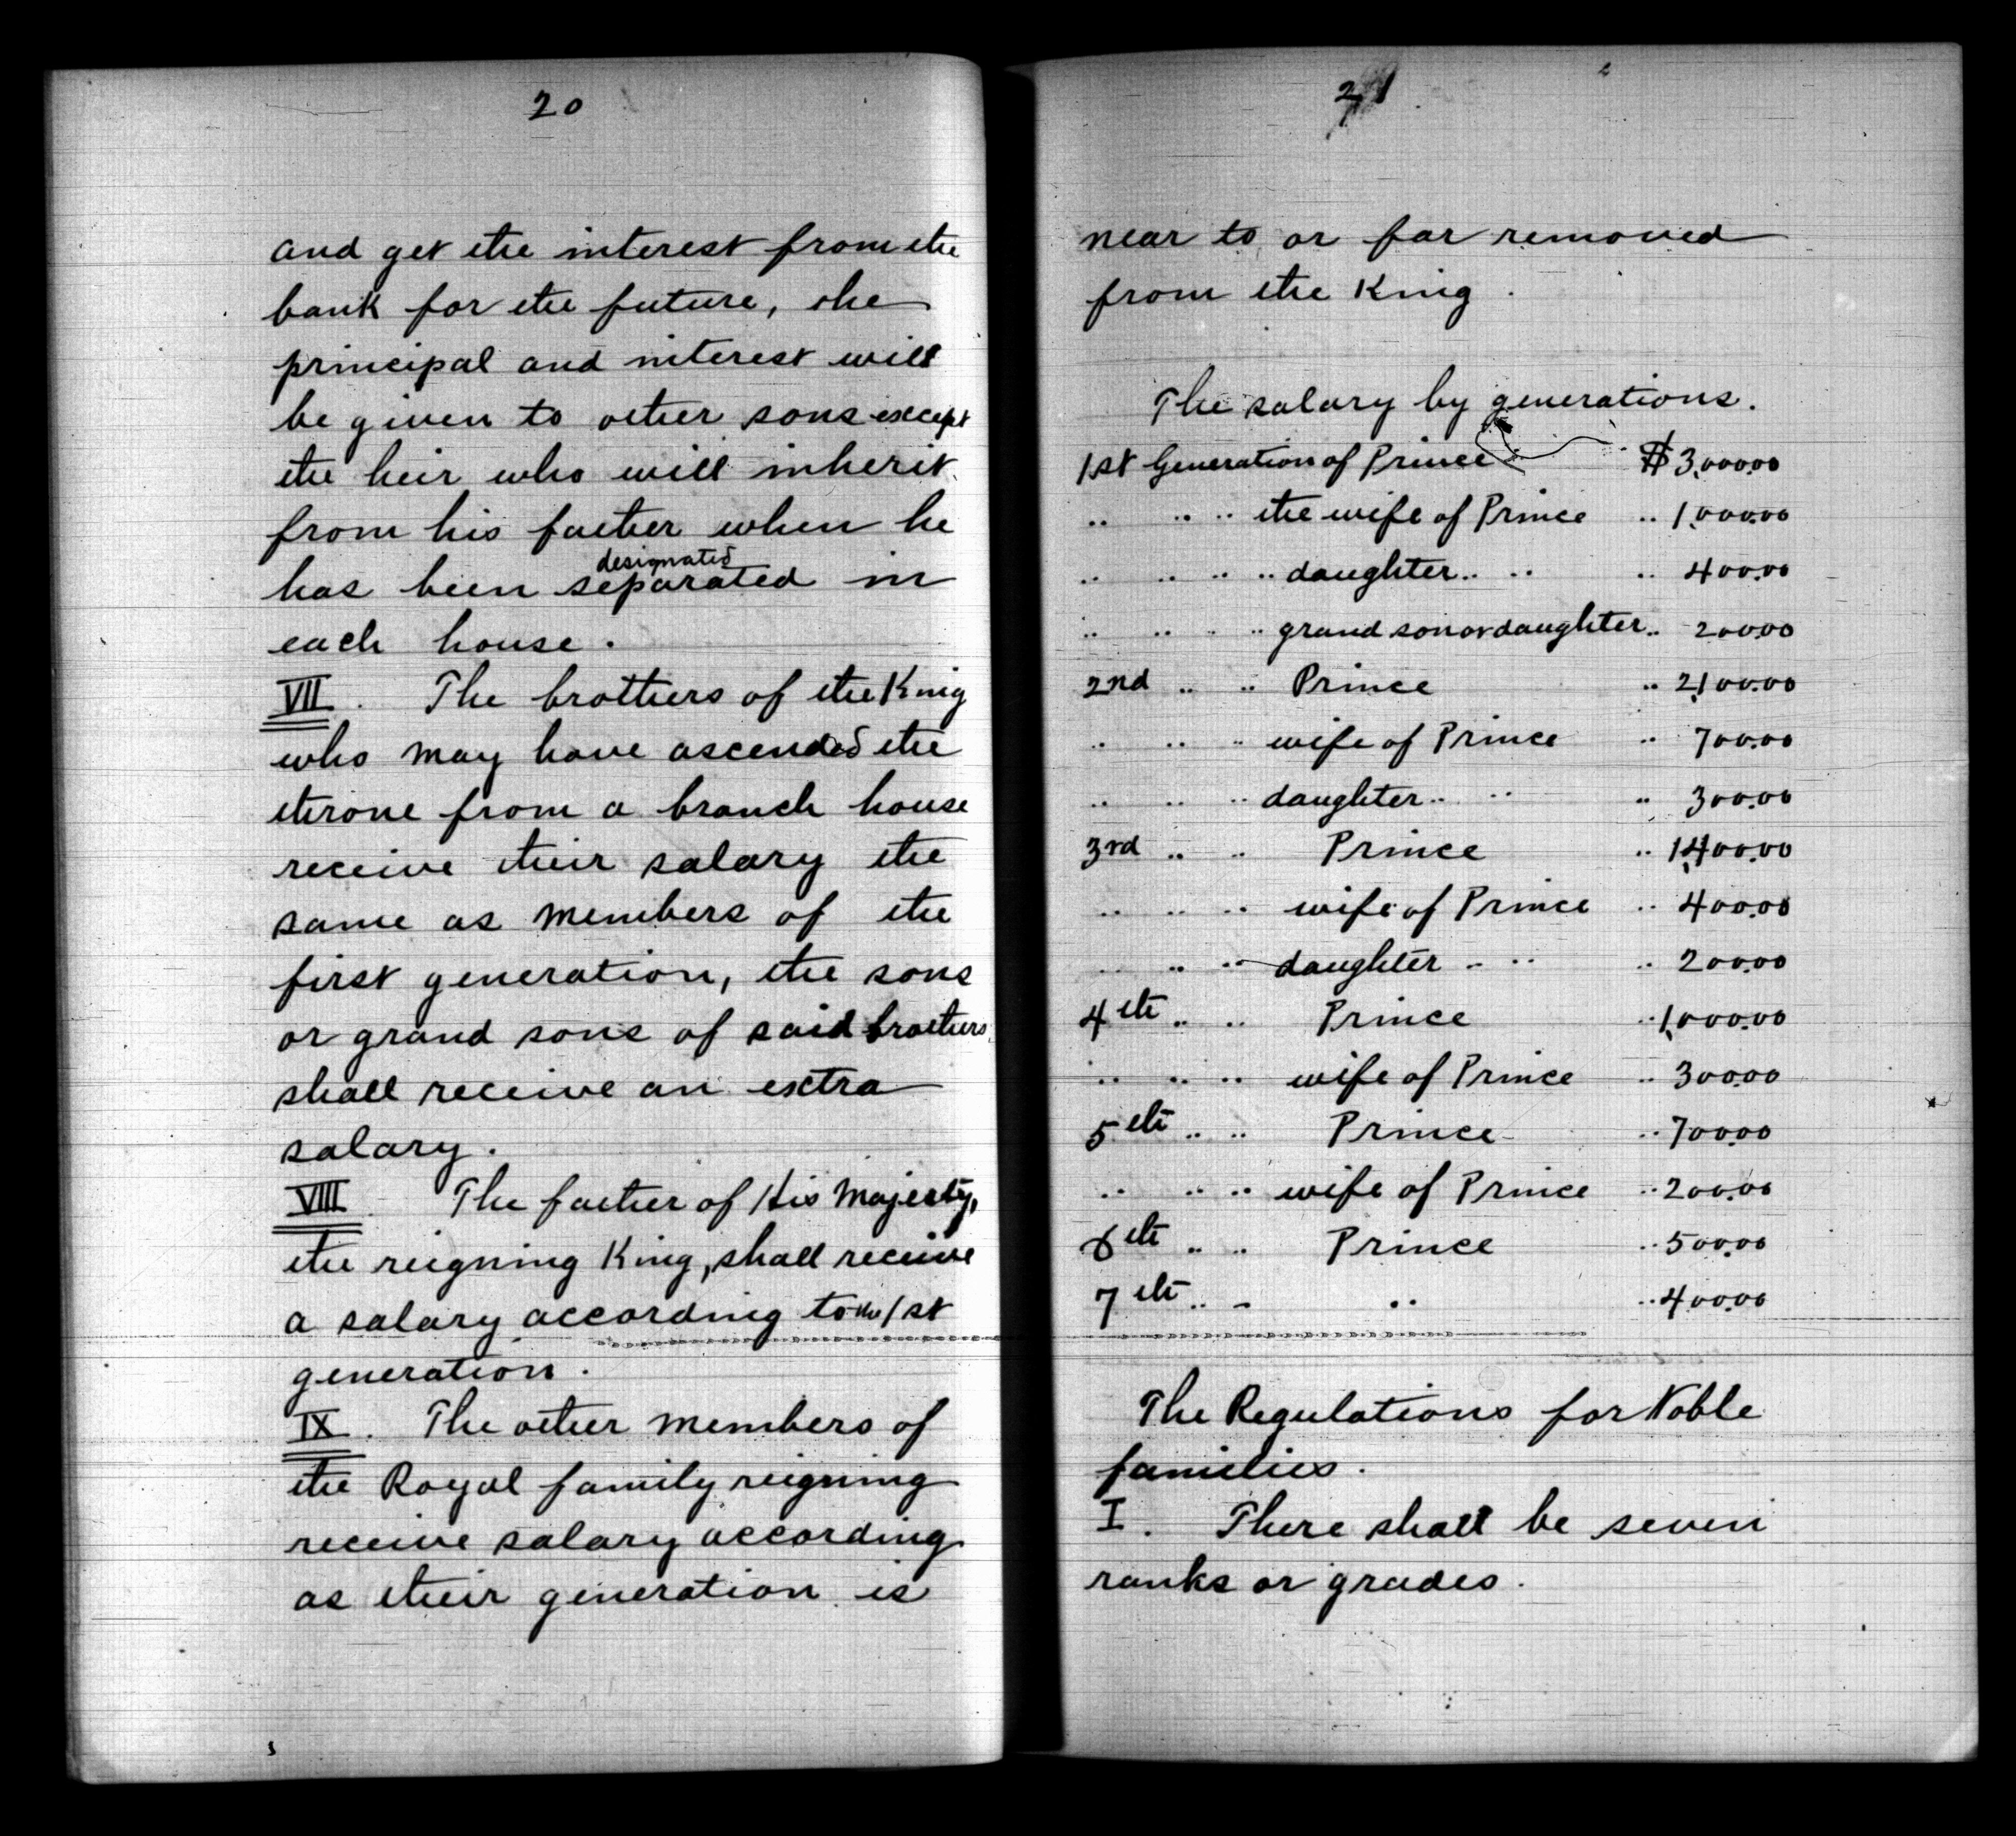 20
and get the interest from the
bank for the future, the
principal and interest will
be given to other sons except
the heir who will inherit
from his father when he
designated
has been separated in
each house.
VII. The brothers of the King
who may have ascended the
throne from a branch house
receive their salary the
same as members of the
first generation, the sons
or grand sons of said brothers
shall receive an extra
salary.
VIII. The father of His Majesty,
the reigning King, shall receive
a salary according to the 1st
generation.
IX. The other members of
the Royal family reigning
receive salary according
as their generation is
21
near to or far removed
from the King.
The salary by generations.
1st Generation of Prince $ 3,000.00
.. .. .. the wife of Prince .. 1,000.00
.. .. .. .. daughter .. .. .. 400.00
.. .. .. .. grand son or daughter .. 200.00
2nd .. .. Prince .. 2,100.00
.. .. .. wife of Prince .. 700.00
.. .. .. daughter .. .. .. 300.00
3rd .. .. Prince .. 1,400.00
.. .. .. wife of Prince .. 400.00
.. .. .. daughter .. .. .. 200.00
4th .. .. Prince .. 1,000.00
.. .. .. wife of Prince .. 300.00
5th .. .. Prince .. 700.00
.. .. .. wife of Prince .. 200.00
6th .. .. Prince .. 500.00
7th .. .. .. .. 400.00
The Regulations for Noble
families.
I. There shall be seven
ranks or grades.